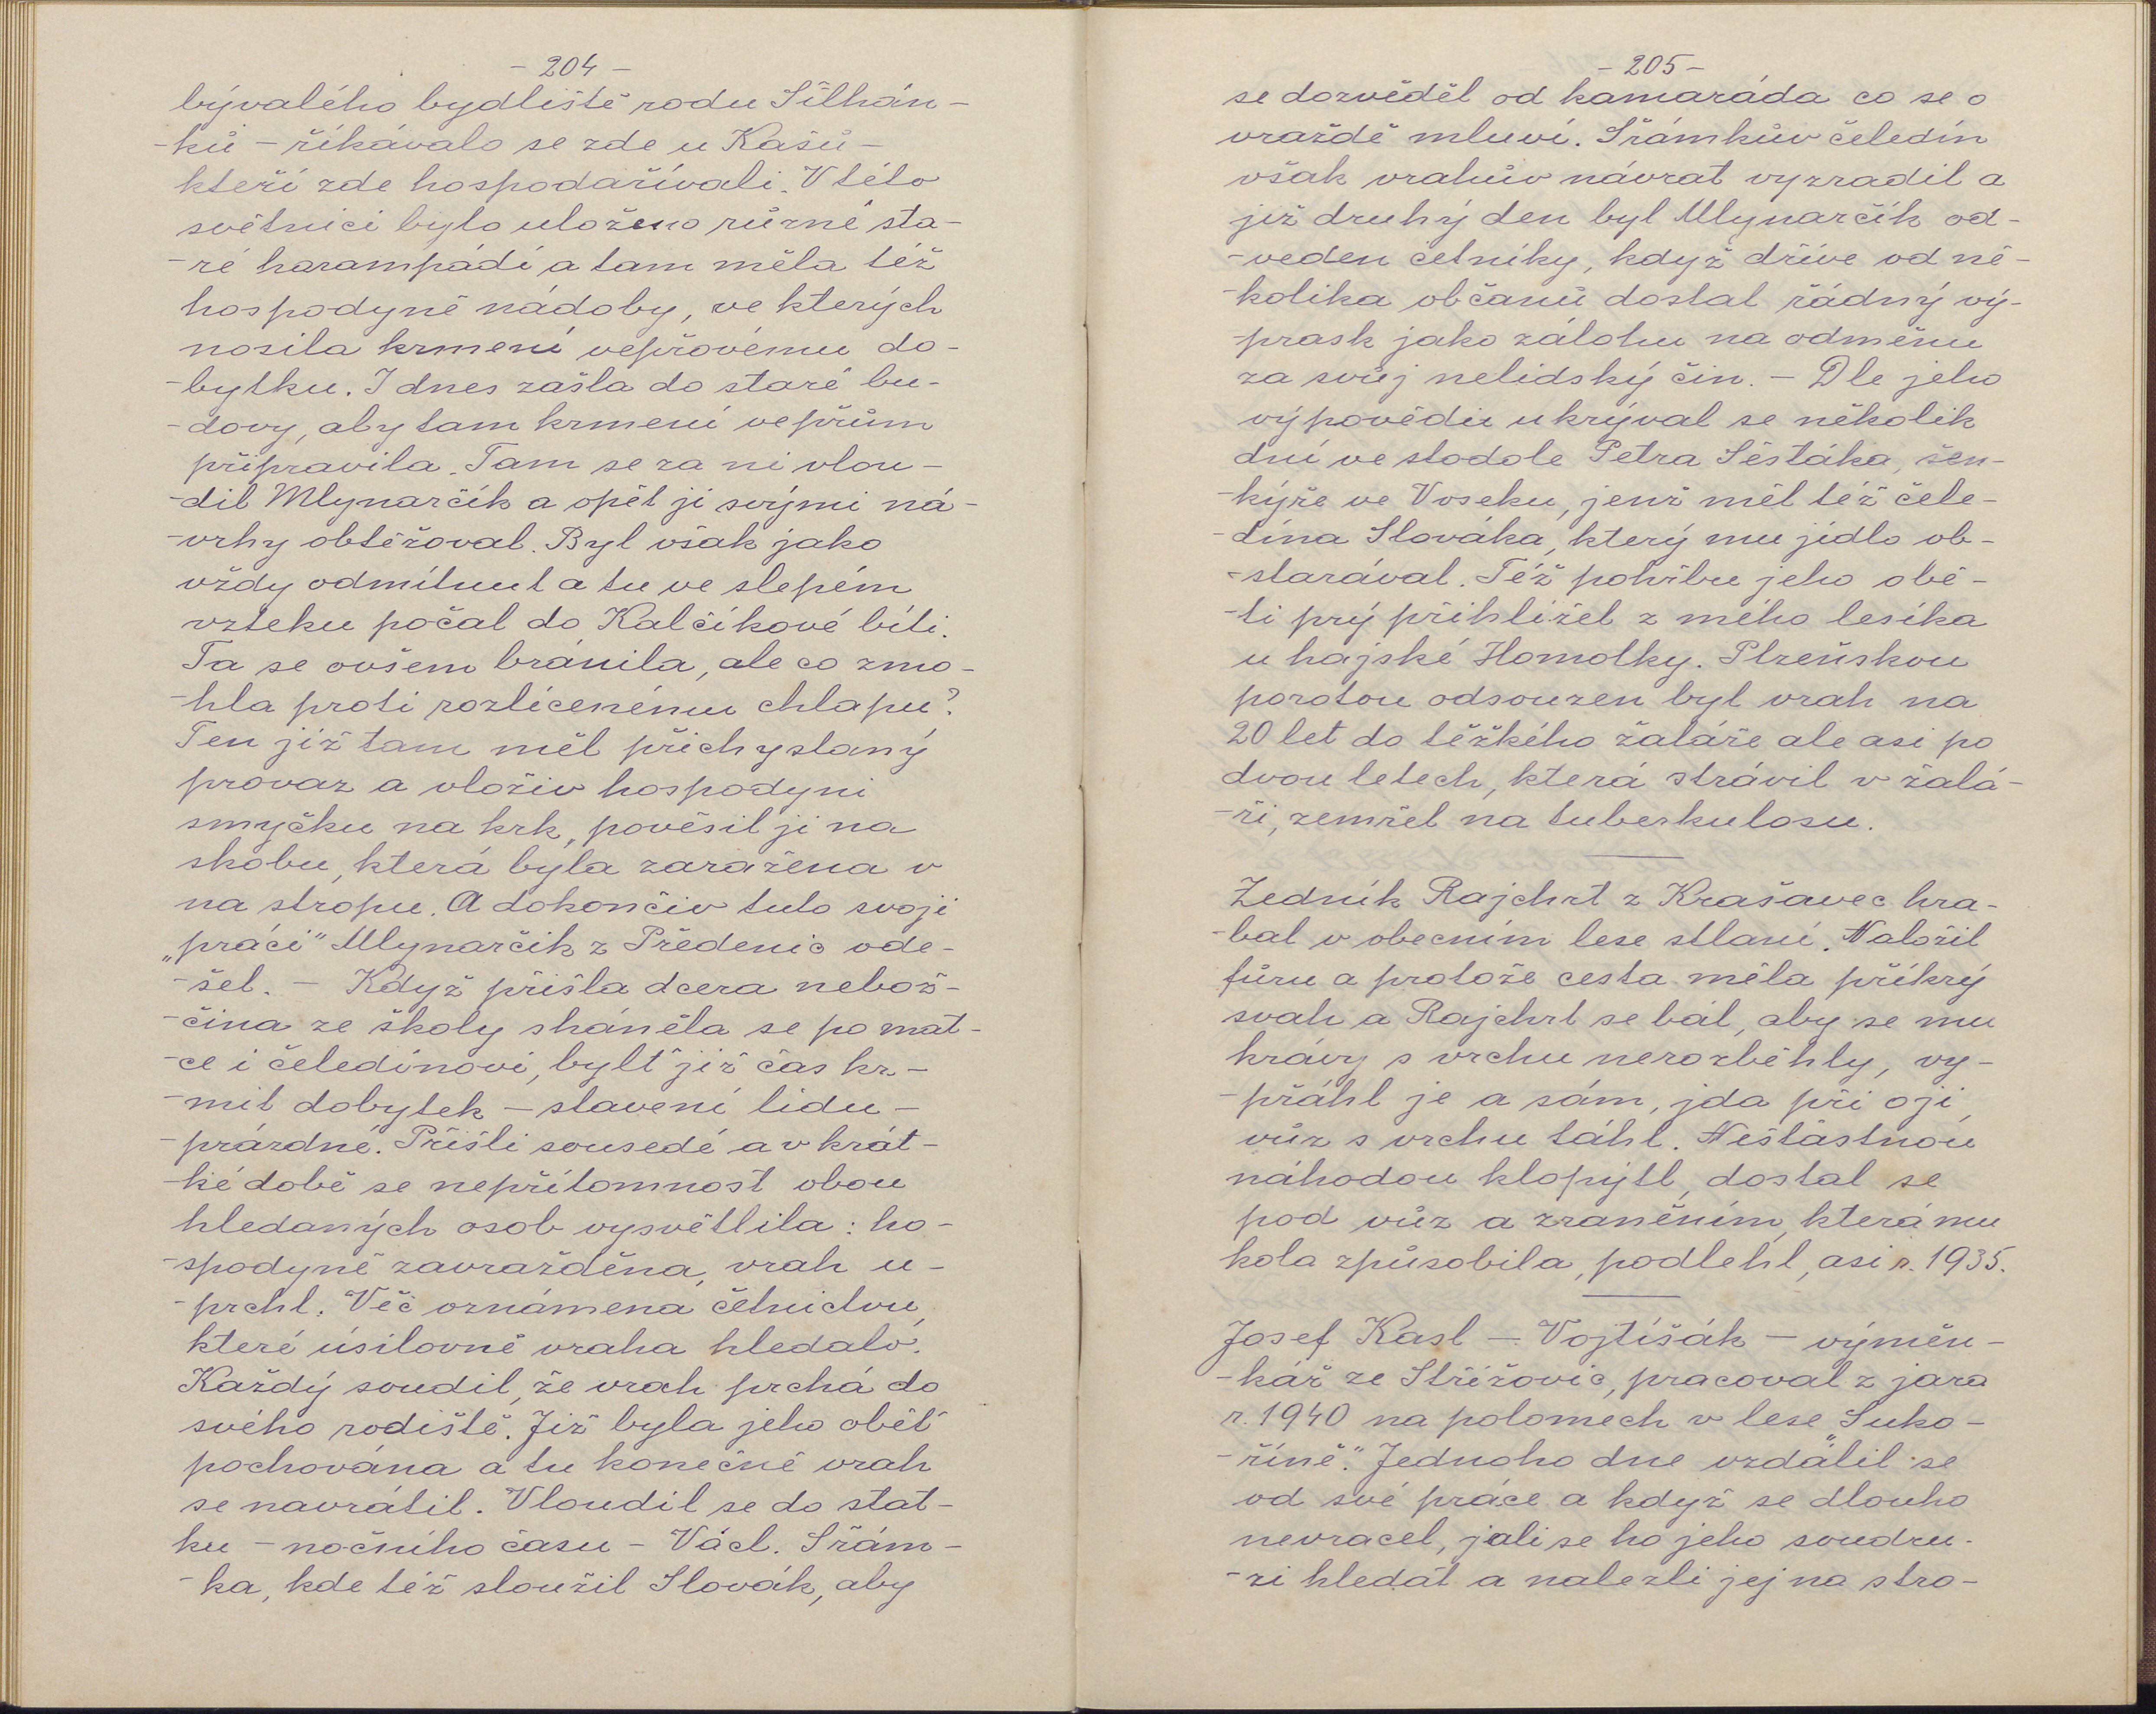 - 204 -
bývalého bydliště rodu Šilhán-
-ků - říkávalo se zde u Kašů -
kteří zde hospodařívali. V této
světnici bylo uloženo různé sta-
-ré harampádí a tam měla též
hospodyně nádoby, ve kterých
nosila krmení vepřovému do-
-bytku. I dnes zašla do staré bu-
-dovy, aby tam krmení vepřům
připravila. Tam se za ni vlou-
-dil Mlynarčík a opět ji svými ná-
-vrhy obtěžoval. Byl však jako
vždy odmítnut a tu ve slepém
vzteku počal do Kalčíkové bíti.
Ta se ovšem bránila, ale co zmo-
-hla proti rozlícenému chlapu?
Ten již tam měl přichystaný
provaz a vloživ hospodyni
smyčku na krk, pověsil ji na
skobu, která byla zaražena v
na stropu. A dokončiv tuto svoji
„práci" Mlynarčik z Předenic ode-
-šel. - Když přišla dcera nebož-
-čina ze školy sháněla se po mat-
-ce i čeledínovi, byltˇ již čas kr-
-mit dobytek - stavení lidu-
-prázdné. Přišli sousedé a v krát-
-ké době se nepřítomnost obou
hledaných osob vysvětlila: ho-
-spodyně zavražděna, vrah u-
-prchl. Věc oznámena četnictvu,
které úsilovně vraha hledalo.
Každý soudil, že vrah prchá do
svého rodiště. Již byla jeho oběť
pochována a tu konečně vrah
se navrátil. Vloudil se do stat-
ku - nočního času - Václ. Šrám-
-ka, kde též sloužil Slovák, aby
- 205 -
se dozvěděl od kamaráda co se o
vraždě mluví. Šrámkův čeledín
však vrahův návrat vyzradil a
již druhý den byl Mlynarčík od-
-veden četníky, když dříve od ně-
-kolika občanů dostal řádný vý-
-prask jako zálohu na odměnu
za svůj nelidský čin. - Dle jeho
výpovědi ukrýval se několik
dní ve stodole Petra Šestáka, šen-
-kýře ve Voseku, jenž měl též čele-
-dína Slováka, který mu jídlo ob-
-starával. Též pohřbu jeho obě-
-ti prý přihlížel z mého lesíka
u hajské Homolky. Plzeňskou
porotou odsouzen byl vrah na
20 let do těžkého žaláře ale asi po
dvou letech, která strávil v žalá-
-ři, zemřel na tuberkulosu.
Zedník Rajchrt z Krašavec hra-
-bal v obecním lese stlaní. Naložil
fůru a protože cesta měla příkrý
svah a Rajchrt se bál, aby se mu
krávy s vrchu nerozběhly, vy-
-přáhl je a sám, jda při oji,
vůz s vrchu táhl. Nešťastnou
náhodou klopýtl, dostal se
pod vůz a zraněním, která mu
kola způsobila, podlehl, asi r. 1935.
Josef Kasl - Vojtíšák - výměn-
-kář ze Střížovic, pracoval z jara
r. 1940 na polomech v lese „Suko-
-říně". Jednoho dne vzdálil se
od své práce a když se dlouho
nevracel, jali se ho jeho soudru-
-zi hledat a nalezli jej na stro-